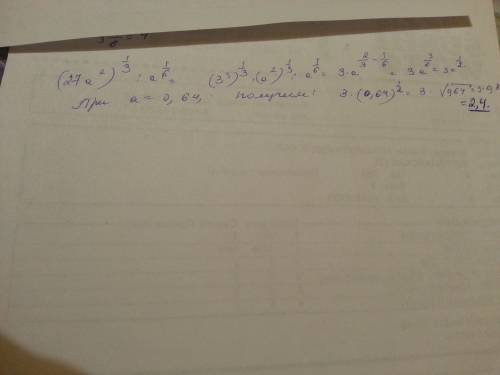 (27a²)^{1/3} : a^{1/6} = (3³)^{1/3} · (a²)^{1/3} : a^{1/6} = 3 · a^{2/3 - 1/6} = 3a^{3/6} = 3a^{1/2}
При a = 0,64, получим: 3 · (0,64)^{1/2} = 3 · √0,64 = 3 · 0,8
= 2,4.